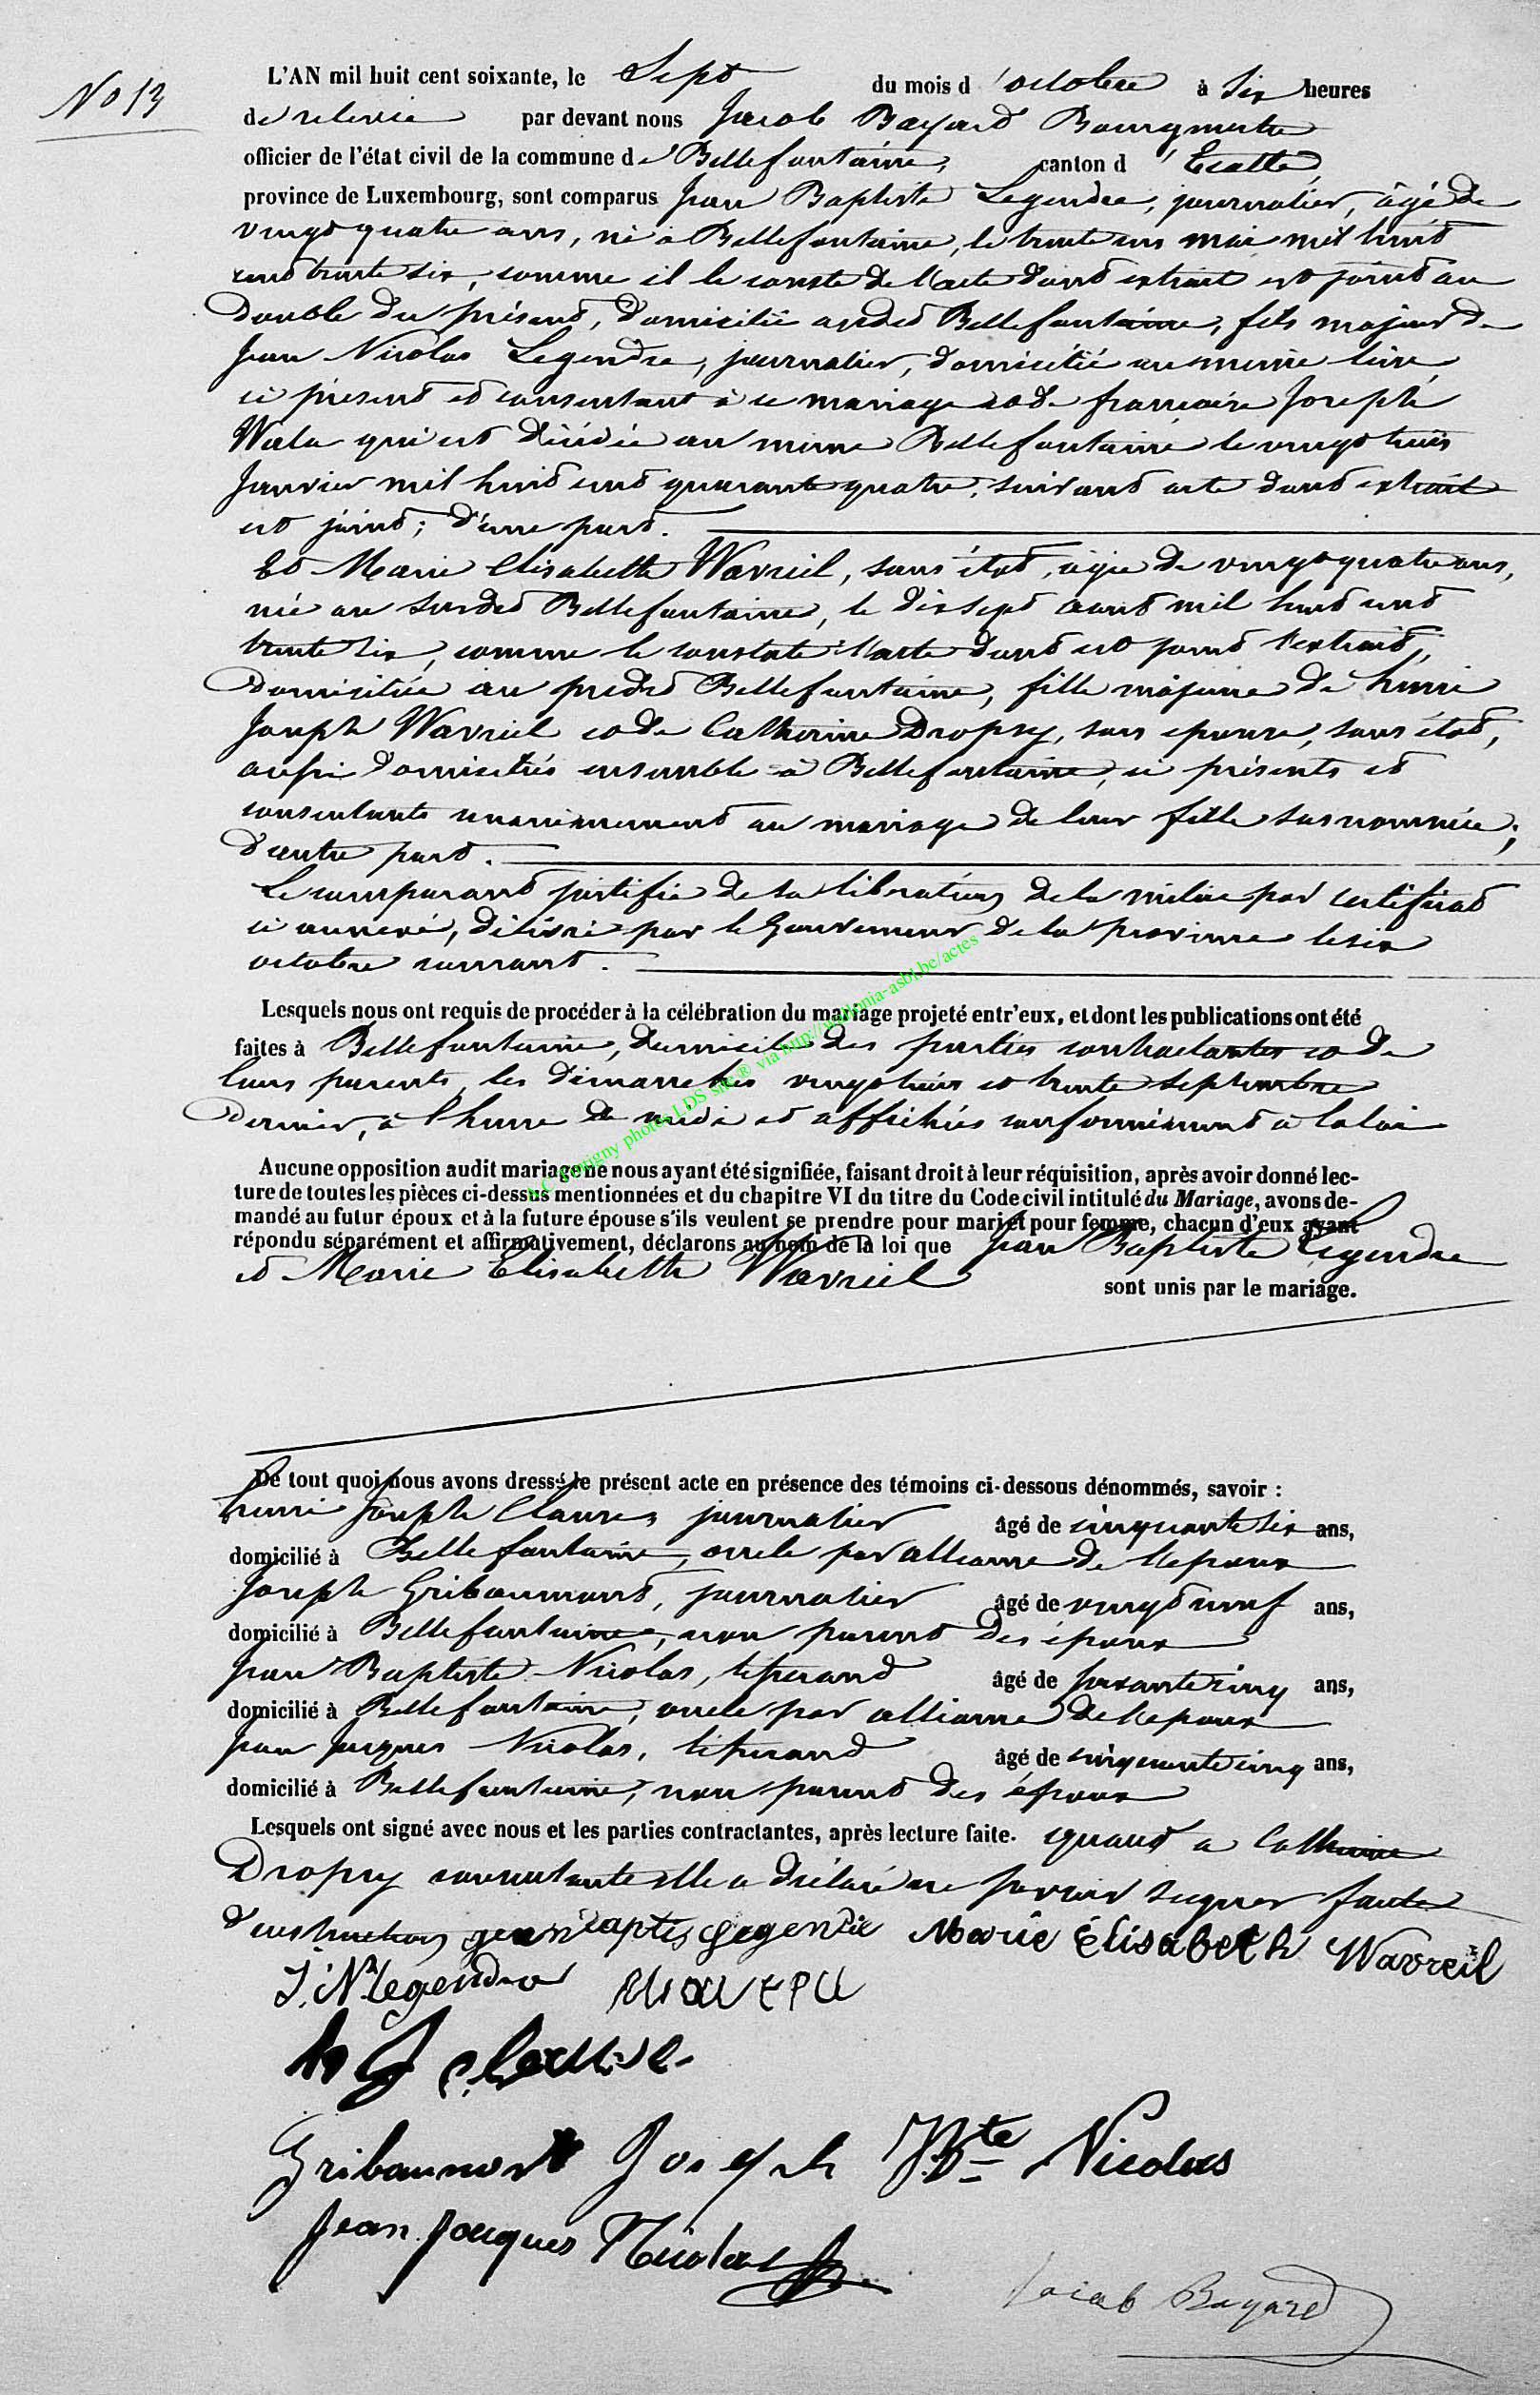 No 13
L'AN mil huit cent soixante, le Sept du mois d'octobre à Six heures
de relevée par devant nous Jacob Bayard Bourgmestre
officier de l'état civil de la commune de Bellefontaine, canton d'Etalle,
province de Luxembourg, sont comparus Jean Baptiste Legendre, journalier, âgé de
vingt quatre ans, né à Bellefontaine, le trente un mai mil huit
cent trente six, comme il le conste de l'acte dont extrait est joint au
double du présent, domicilié audit Bellefontaine, fils majeur de
Jean Nicolas Legendre, journalier, domicilié au même lieu,
ci présent et consentant à ce mariage et de françoise Joseph
Wala qui est décédée au même Bellefontaine le vingt huit
Janvier mil huit cent quarante quatre, suivant acte dont extrait
est joint; d'une part.
Et Marie Elisabette Wavreil, sans état, agée de vingt quatre ans,
née au susdit Bellefontaine, le dix sept août mil huit cent
trente six, comme le constate l'acte dont est joint l'extrait,
domiciliée au predit Bellefontaine, fille majeure de henri
Joseph Wavreil et de Catherine Dropsy, son epouse, sans état,
aussi domiciliés ensemble à Bellefontaine, ci présents et
consentants unanimement au mariage de leur fille susnommée;
d'autre part.
Le comparant justifie de sa libération de la milice par certificat
ci annexé, délivré par le Gouverneur de la province le six
octobre courant.
Lesquels nous ont requis de procéder à la célébration du mariage projeté entr'eux, et dont les publications ont été
faites à Bellefontaine, domicile des parties contractantes et de
leurs parents, les dimanches vingt trois et trente septembre
dernier, à l'heure de midi et affichées conformément à la loi
Aucune opposition audit mariage ne nous ayant été signifiée, faisant droit à leur réquisition, après avoir donné lec-
ture de toutes les pièces ci-dessus mentionnées et du chapitre VI du titre du Code civil intitulé du Mariage, avons de-
mandé au futur époux et à la future épouse s'ils veulent se prendre pour mari et pour femme, chacun d'eux ayant
répondu séparément et affirmativement, déclarons au nom de la loi que Jean Baptiste Legendre
et Marie Elisabette Wavreil sont unis par le mariage.
De tout quoi nous avons dressé le présent acte en présence des témoins ci-dessous dénommés, savoir :
henri Joseph Claure journalier âgé de cinquante six ans,
domicilié à Bellefontaine, oncle par alliance de l'epoux
Joseph Gribaumont, journalier âgé de vingt neuf ans,
domicilié à Bellefontaine, non parent des époux
Jean Baptiste Nicolas, tisserand âgé de soixante cinq ans,
domicilié à Bellefontaine, oncle par alliance de l'epoux
Jean Jacques Nicolas, tisserand âgé de cinquante cinq ans,
domicilié à Bellefontaine, non parent des époux
Lesquels ont signé avec nous et les parties contractantes, après lecture faite. quant a Catherine
Dropsy consentante elle a déclaré ne savoir signer faute
d'instruction Marie Élisabeth Wavreil
J. N. Legendre
h J
Gribaumont Joseph J Bte Nicolas
Jean Jacques Nicolas
Jacob Bayard
photos LDS via http://wallonia-asbl.be/actes